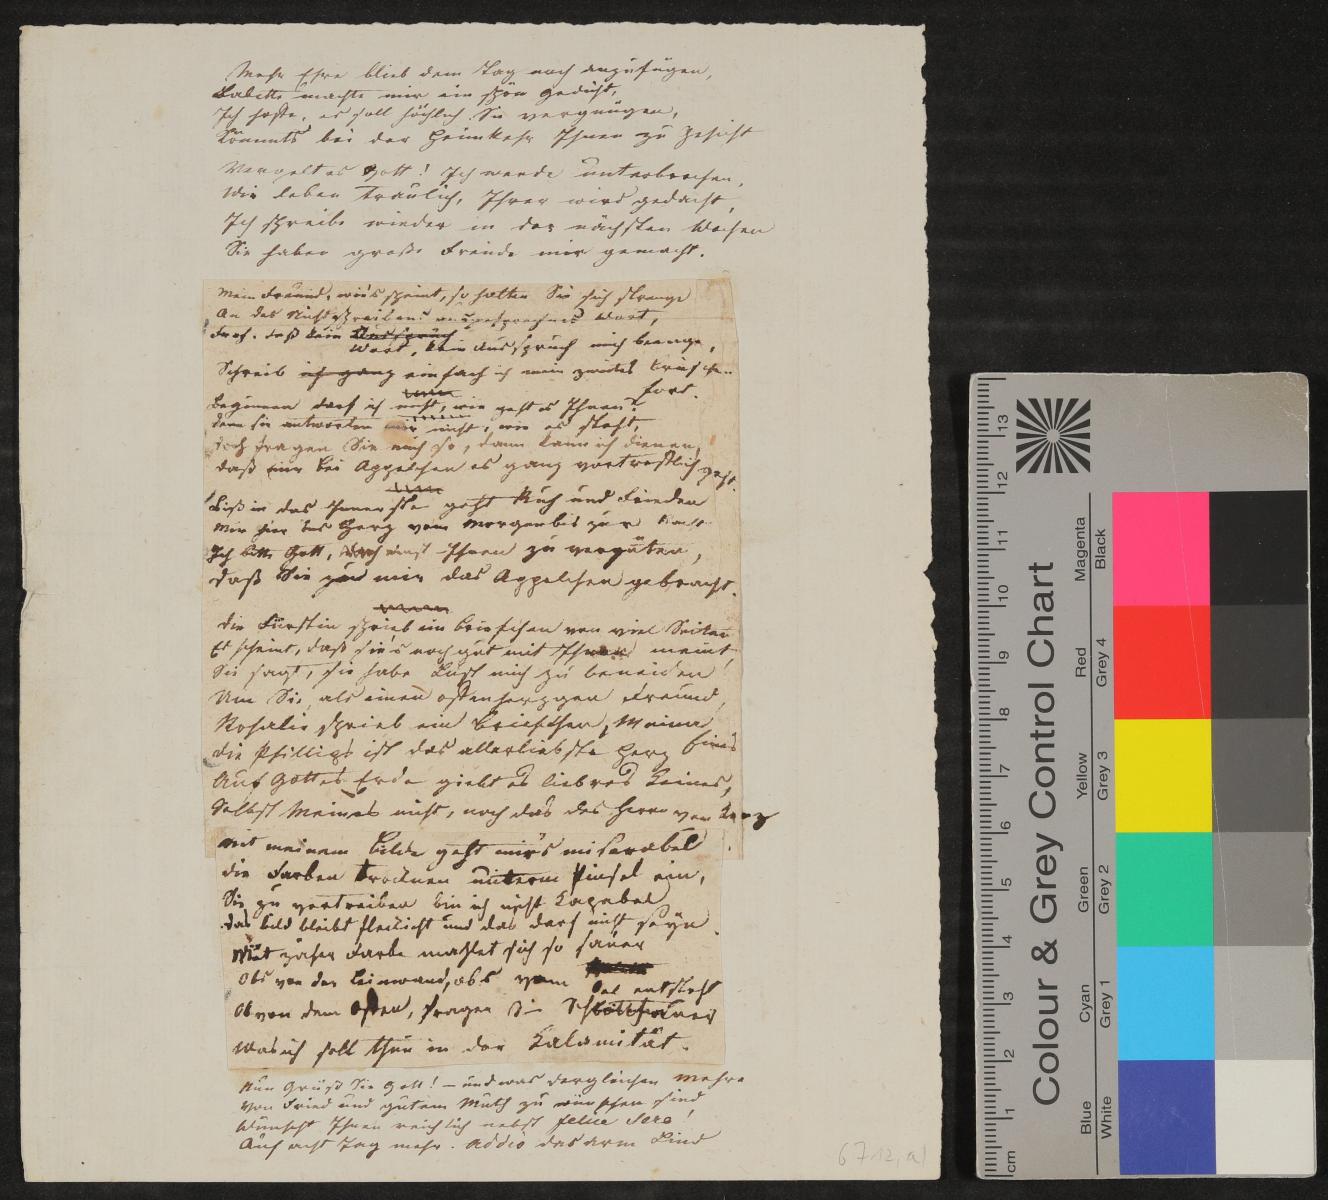 Mehr Ehre blieb dem Tag noch anzufügen,
machte mir ein schön Gedicht,
Ich hoffe, es soll höchlich Sie vergnügen,
Kömmts bei der Heimkehr Ihnen zu Gesicht
Vergelt es Gott! Ich werde unterbrochen,
Wir leben traulich, Ihrer wird gedacht,
Ich schreibe wieder in der nächsten Wochen
Sie haben große Freude mir gemacht.
Mein Freund, wie's scheint, so halten Sie sich strenge
An das Nichtschreibens ausgesprochnes Wort,
daß kein Ausspruch
Wort, kein Ausspruch mich beenge,
Schreib ich ganz einfach ich mein zweites Briefchen
fort.
Beginnen darf ich nicht, wie geht es Ihnen?
denn Sie antworten mir nicht, wie es steht,
doch fragen Sie mich so, dann kann ich dienen,
daß mir bei Appelchen es ganz vortrefflich geht.
Biß in das Innerste geht Ruh und Frieden
Mir hier das Herz vom Morgen bis zur Nacht
Ich bitte Gott, Ihnen zu vergüten,
daß Sie zu mir das Appelchen gebracht.
die Fürstin schrieb ein Briefchen von viel Seiten
Es scheint, daß sie's noch gut mit Ihnen meint
Sie sagt, sie habe Lust mich zu beneiden
Um Sie, als einen offenherzgen Freund,
Rosalie schrieb ein Briefchen,
die Phillips ist das allerliebste Herz
Auf Gottes Erde giebt es liebres Keines,
Selbst Meines nicht, noch das des Herrn von
Mit meinem Bilde geht mir's miserabel
die Farben trocknen unterm Pinsel ein,
Sie zu vertreiben bin ich nicht kapabel
das Bild bleibt fleckicht und das darf nicht seyn.
Mit zäher Farbe mahlet sich so sauer
Obs von der Leinwand, obs vom
Oel entsteht
Ob von dem Ofen, fragen Sie
Was ich soll thun in der Kalamität.
Nun Grüß Sie Gott! – und was dergleichen mehre
Von Fried und gutem Muth zu wünschen sind
Wünscht Ihnen reichlich nebst felice Sera!
Auf acht Tag mehr. Addio das arm Kind
67 12, a)
cm 1 2 3 4 5 6 7 8 9 10 11 12 13
Colour & Grey Control Chart
Blue Cyan Green Yellow Red Magenta
White Grey 1 Grey 2 Grey 3 Grey 4 Black